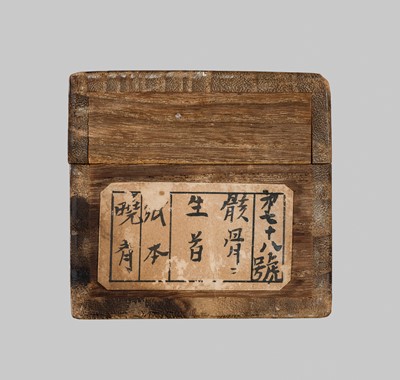 第七十八號
骸骨ニ
生首
紙本
曉斎